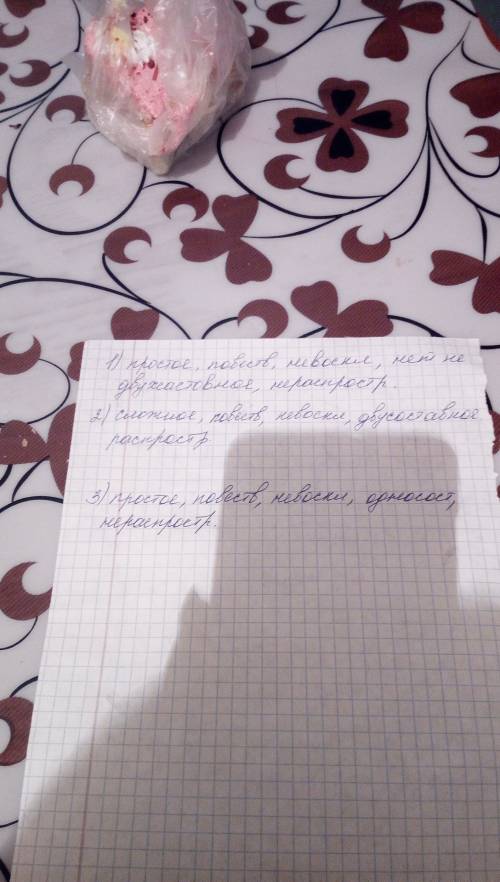 1) простое, повеств, невоскл, нет не
двухчастовное, нераспростр.
2) сложное, повств, невоскл, двусоставное
распростр
3) простое, повеств, невоскл, односост,
нераспростр.